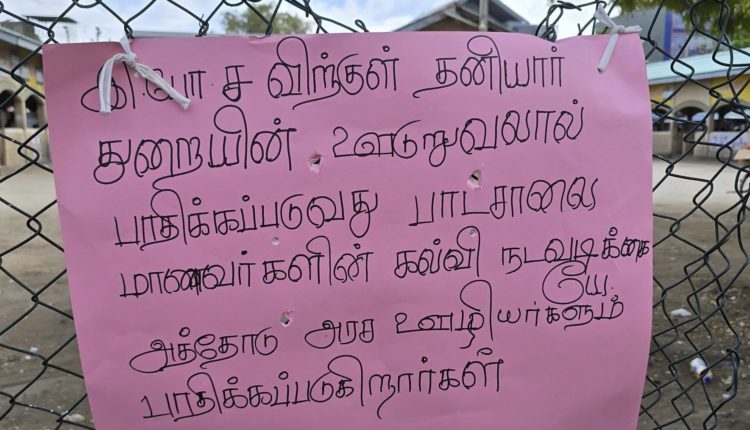 இ.போ.ச விற்குள் தனியார்
துறையின் ஊடுறுவலால்
பாதிக்கப்படுவது பாடசாலை
மாணவர்களின் கல்வி நடவடிக்கை
யே.
அத்தோடு அரச ஊழியர்களும்
பாதிக்கப்படுகிறார்கள்